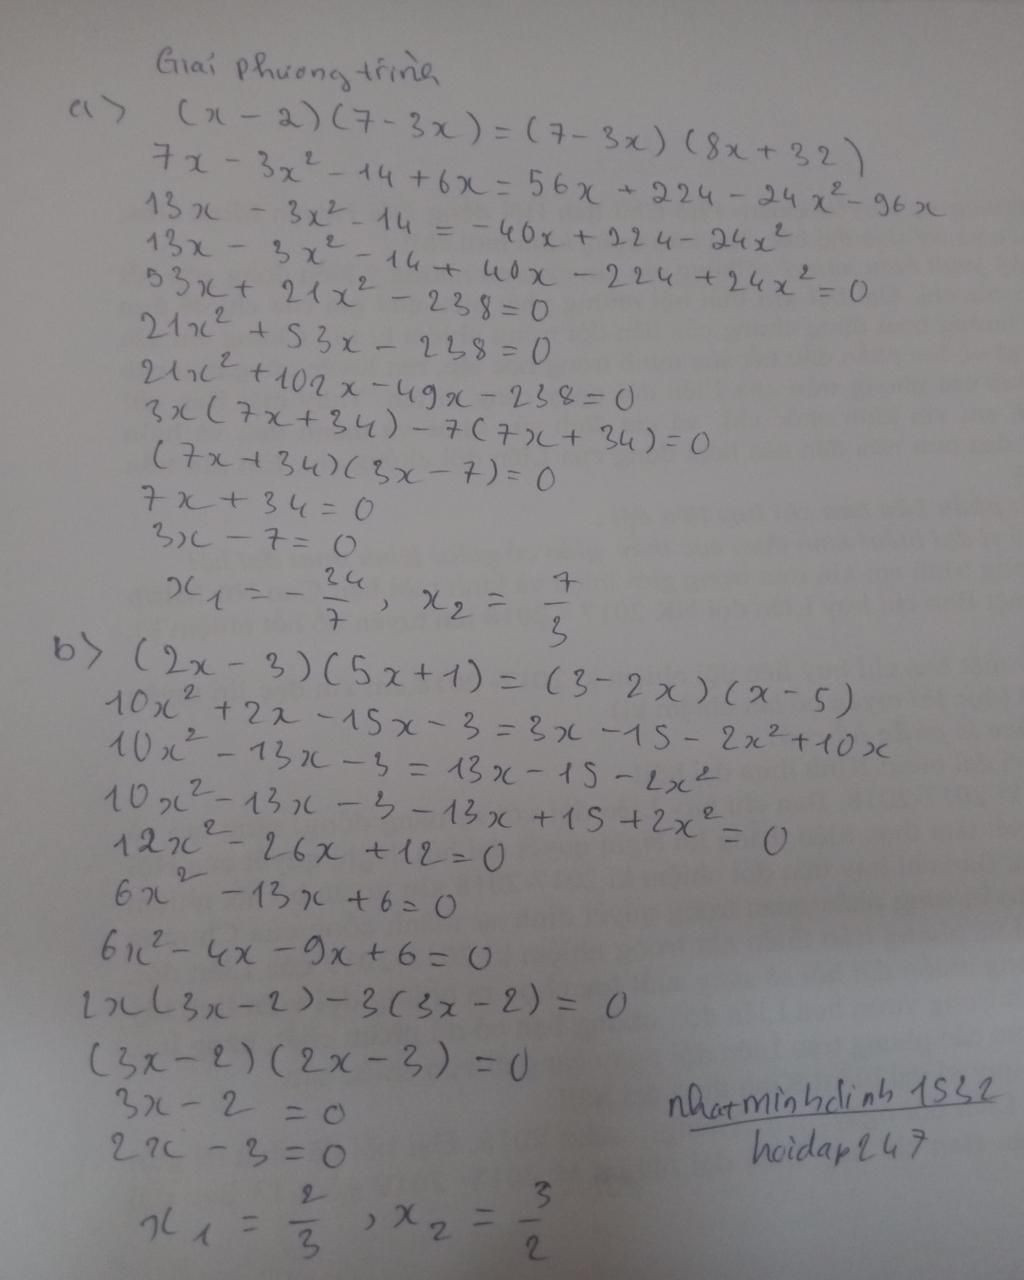 Giải phương trình
a> (x - 2)(7 - 3x) = (7 - 3x)(8x + 32)
7x - 3x² - 14 + 6x = 56x + 224 - 24x² - 96x
13x - 3x² - 14 = -40x + 224 - 24x²
13x - 3x² - 14 + 40x - 224 + 24x² = 0
53x + 21x² - 238 = 0
21x² + 53x - 238 = 0
21x² + 102x - 49x - 238 = 0
3x(7x + 34) - 7(7x + 34) = 0
(7x + 34)(3x - 7) = 0
7x + 34 = 0
3x - 7 = 0
x₁ = -34/7, x₂ = 7/3
b> (2x - 3)(5x + 1) = (3 - 2x)(x - 5)
10x² + 2x - 15x - 3 = 3x - 15 - 2x² + 10x
10x² - 13x - 3 = 13x - 15 - 2x²
10x² - 13x - 3 - 13x + 15 + 2x² = 0
12x² - 26x + 12 = 0
6x² - 13x + 6 = 0
6x² - 4x - 9x + 6 = 0
2x(3x - 2) - 3(3x - 2) = 0
(3x - 2)(2x - 3) = 0
3x - 2 = 0
2x - 3 = 0
x₁ = 2/3, x₂ = 3/2
nhatminhdinh1532
hoidap247